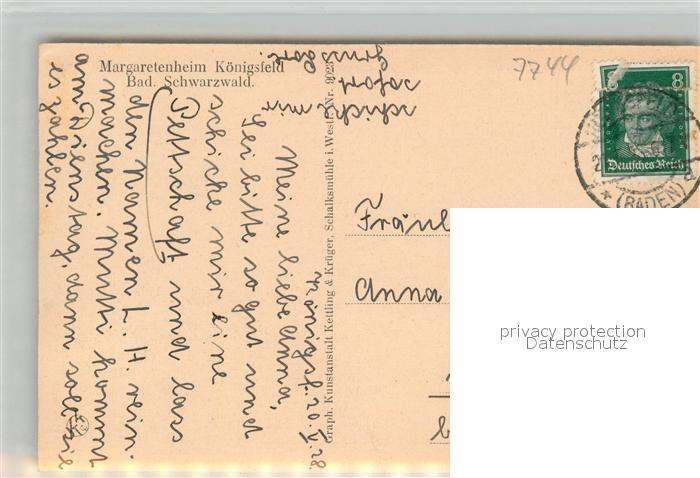 Margaretenheim Königsfeld
Bad. Schwarzwald.
7744
8 8
Deutsches Reich
(BADEN)
Graph. Kunstanstalt Kettling & Krüger, Schalksmühle i.Westf. Nr. 9023
Königsf. 20. V. 28.
Meine liebe Anna,
sei bitte so gut und
schicke mir eine
Petschaft und lass
den Namen L. H. rein-
machen. Mutti kommt
am Dienstag, dann soll sie
es zahlen.
schicke mir
sofort
Fräul
Anna
privacy protection
Datenschutz